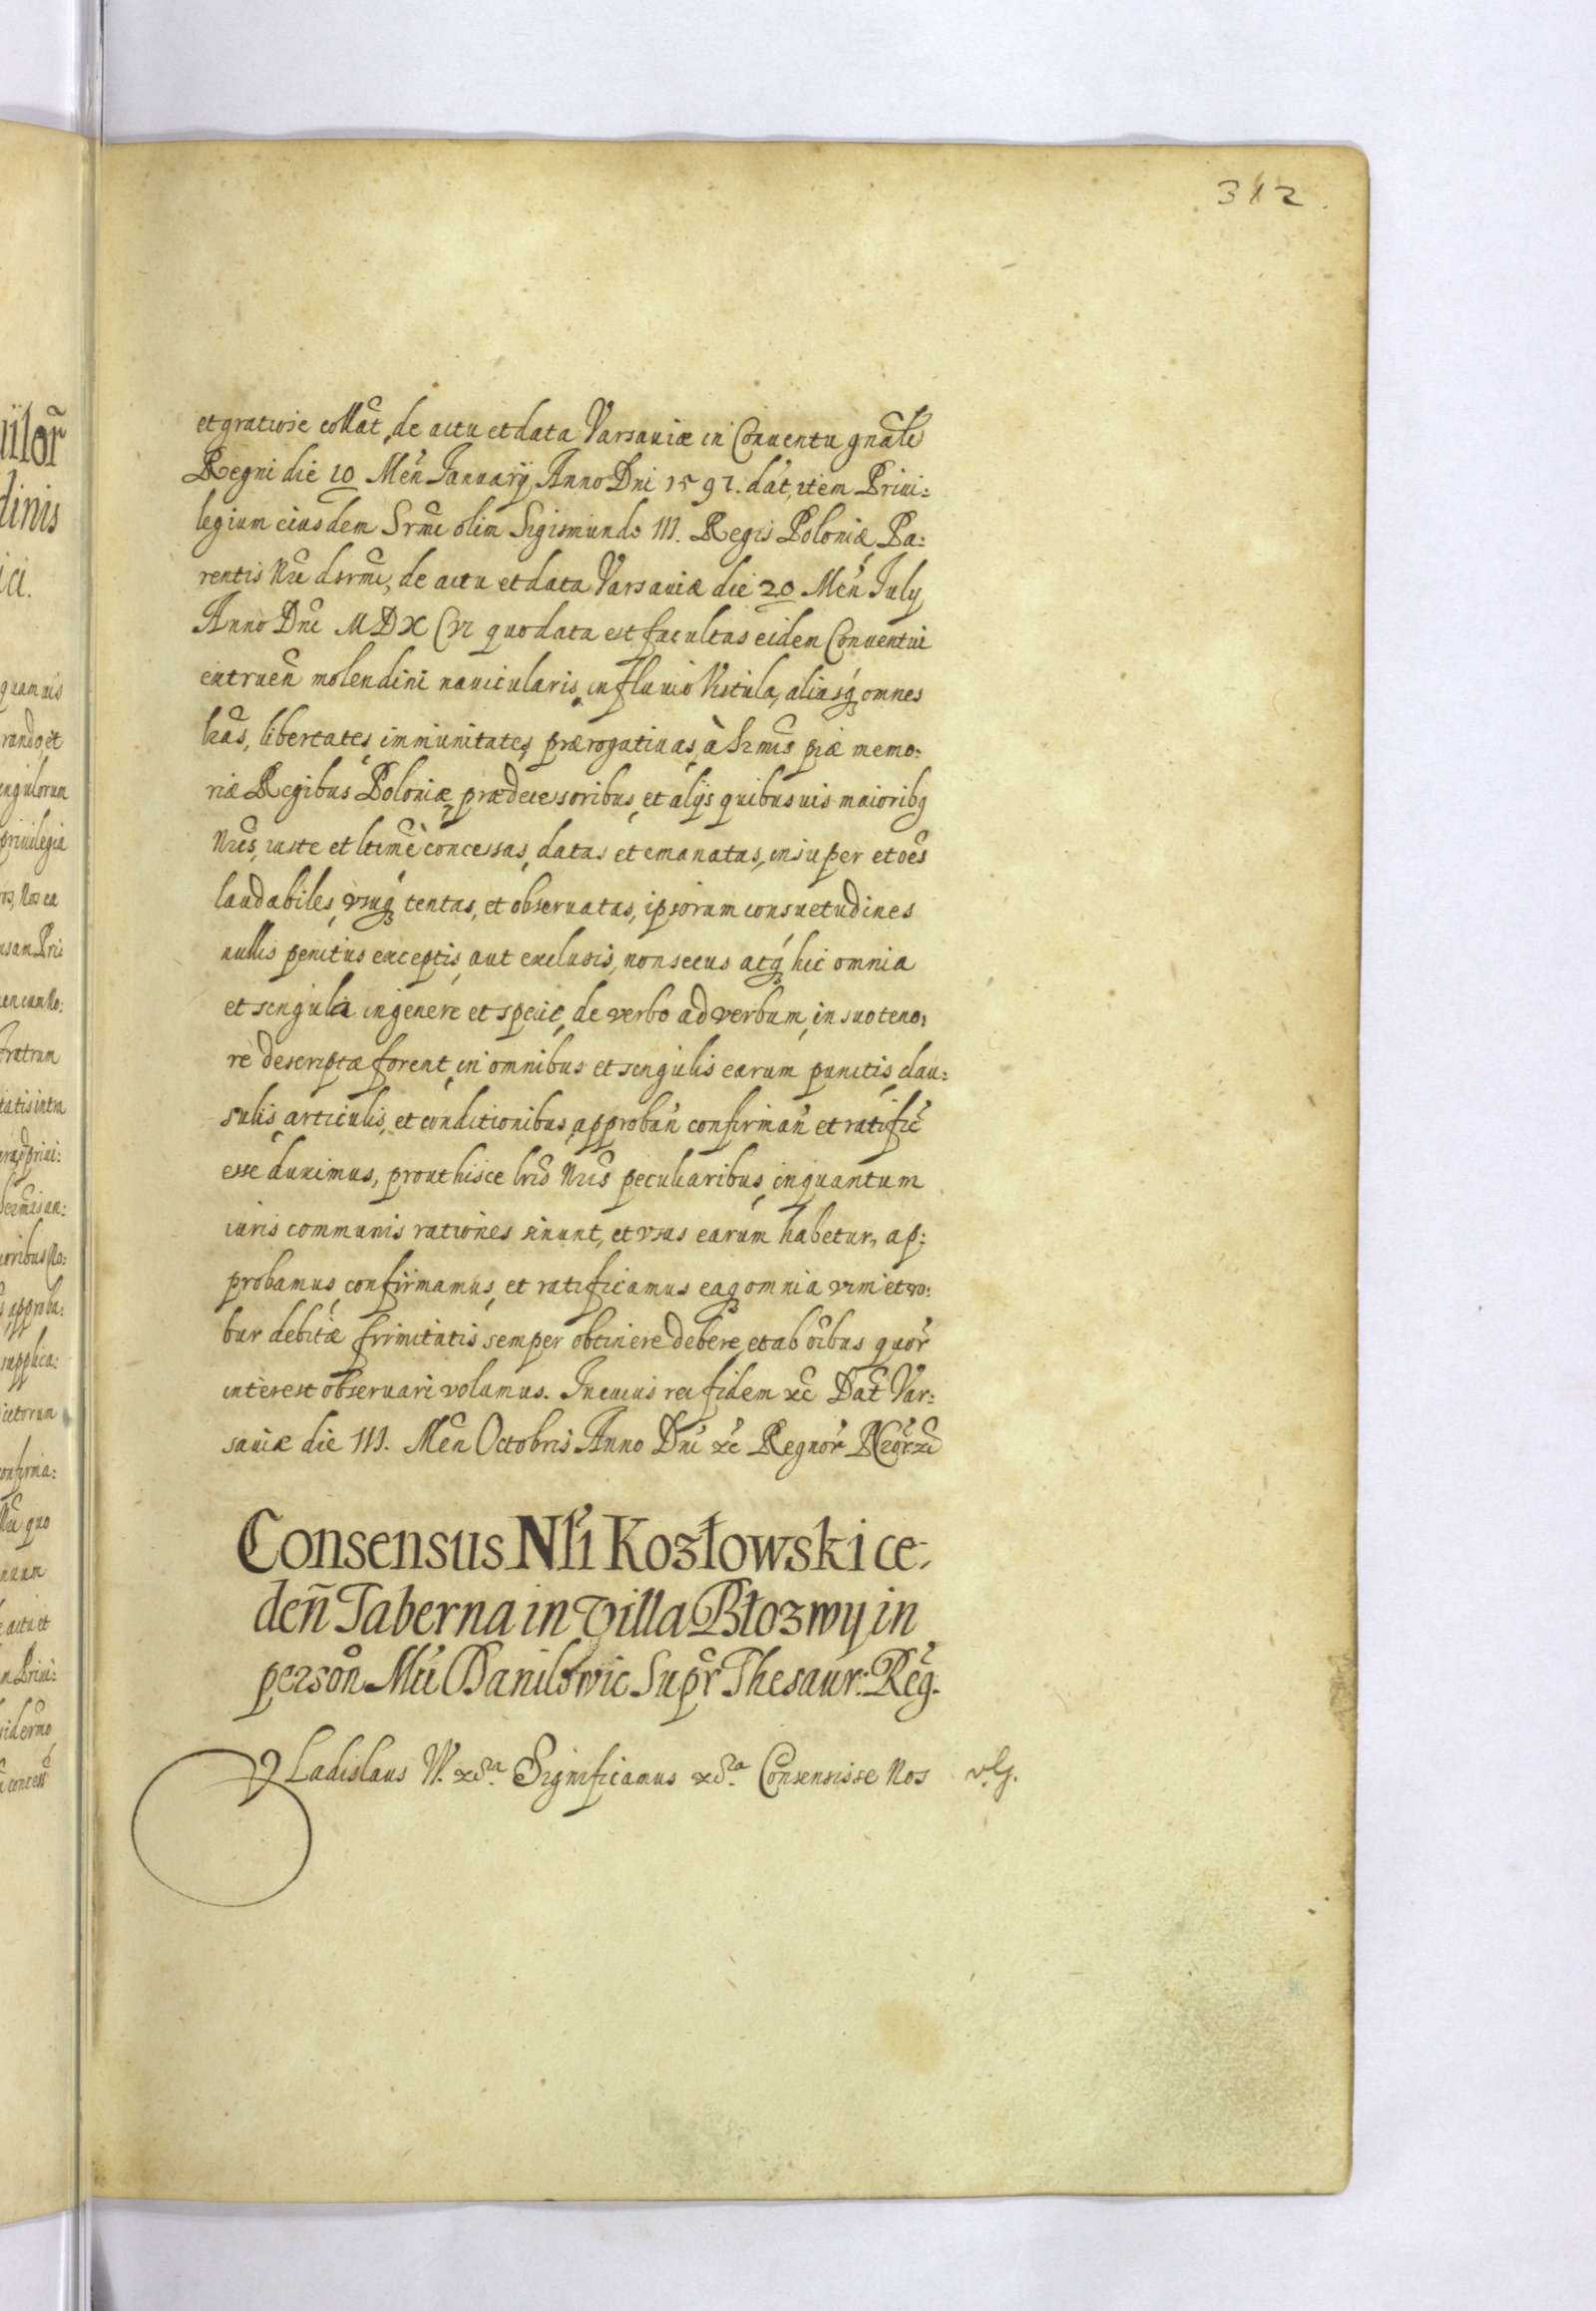 312.
et gratiose collat̃, de actu et data Varsaviæ in Conventu gnãli
Regni die 10 Meñ Ianuarÿ Anno Dni 1591. dat̃, item Privi:
legium eiusdem Srm̃i olim Sigismundo III. Regis Poloniæ Pa:
rentis Nr̃i dsrm̃i, de actu et data Varsaviæ die 20 Meñ July
Anno Dnĩ MDXCVI quo data est facultas eidem Conventui
extrueñ molendini navicularis, in fluvio Vistula, aliasq; omnes
lr̃as, libertates, immunitates, prærogativas, à Srm̃is piæ memo:
riæ Regibus Poloniæ, prædecessoribus, et alijs quibusuis maioribq
Nr̃is, iuste et ltimẽ concessas, datas et emanatas, insuper et oẽs
laudabiles, vsuq; tentas, et observatas, ipsorum consuetudines
nullis penitus exceptis, aut exclusis, non secus atq; hic omnia
et singula in genere et specie, de verbo ad verbum, in suo teno:
re descriptæ forent, in omnibus et singulis earum punctis, clau:
sulis, articulis, et conditionibus, approbañ confirmañ et ratific̃
esse duximus, prout hisce lr̃is Nr̃is peculiaribus, inquantum
iuris communis rationes sinunt, et vsus earum habetur, ap:
probamus, confirmamus, et ratificamus eaq; omnia vim et ro:
bur debitæ firmitatis semper obtinere debere, et ab oĩbus quor̃
interest observari volumus. In cuius rei fidem &c̃ Dat̃ Var:
saviæ die III. Meñ Octobris Anno Dnĩ &c̃ Regnor̃ Nr̃or̃ &c̃
Consensus Nłi Kozłowski ce:
deñ Taberna in Villa Błozwy in
persoñ Mci Daniłowic Supr̃ Thesaur: Reg̃.
Vladislaus IV. &c̃a. Significamus &c̃a. Consensisse Nos v.G.